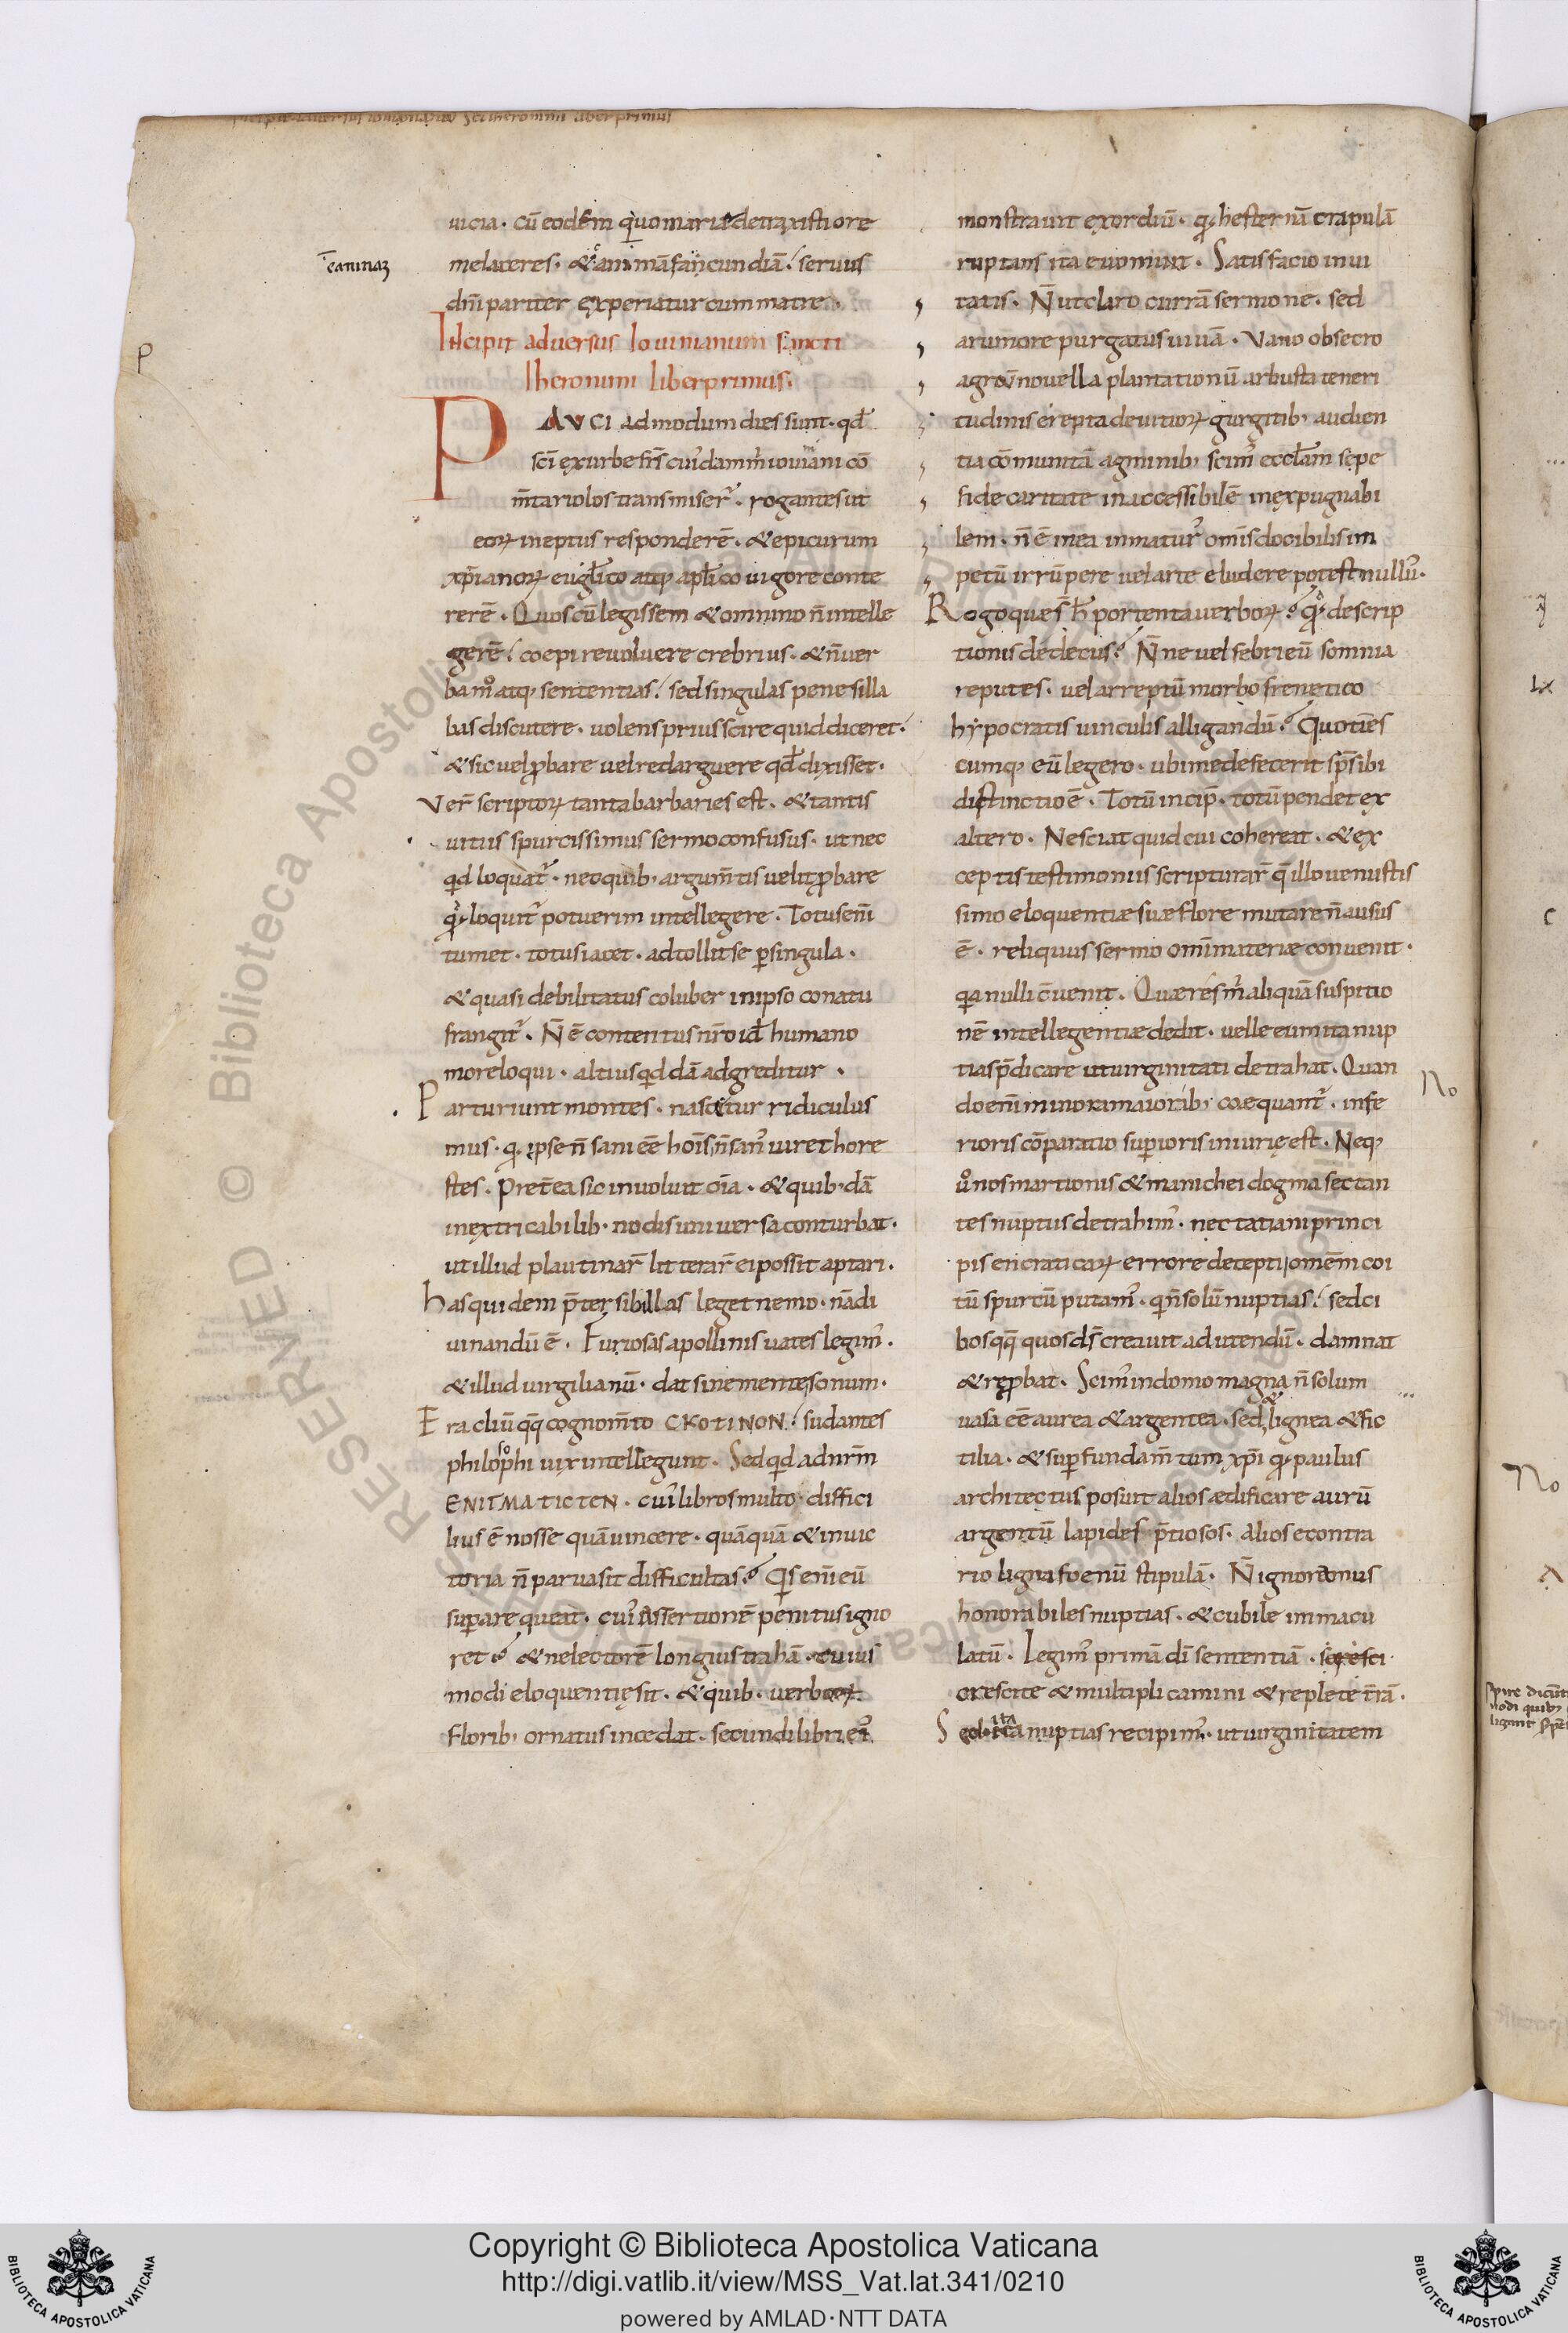 incipit adversus iovinianum sci iheronimi liber primus
uicia · cū eodem q̇ uo mariæ detraxisti ore
me laceres · & animā fancundiā · seruus
c̄eaninaʒ
dn̄i pariter experiatur cum matre ·
Incipit aduersus Iouinianum sancti
Iheronimi liber primus.
P
PAVCI admodum dies sunt · qd̄
sc̄i ex urbe fr̄s cui'dam m̄ iouiniani cō
m̄tariolos transmiser̄ · rogantes ut
eoꝝ ineptiis responderē · & epicurum
xp̄ianoꝝ eug̅lico atq; apl̄ico uigore conte
rerē · Quos cū legissem & omnino n̄ intelle
gerē · coepi reuoluere crebrius · & n̄ uer
ba m̊ atq; sententias · sed singulas pene silla
bas discutere · uolens prius scire quid diceret ·
& sic uel ꝓbare uel redarguere qd̄ dixisset ·
Ver̄ scriptoꝝ tanta barbaries est · & tantis
uitiis spurcissimus sermo confusus · ut nec
qd loquat̄ · nec quib; argum̄tis uelit ꝓbare
q̇ loquit̄ potuerim intellegere · Totus eni̅
tumet · totus iacet · adtollit se ꝑ singula ·
& quasi debilitatus coluber in ipso conatu
frangit̄ · N̄ ē contentus nr̄o id ē humano
more loqui · altius qd dā adgreditur ·
Parturiunt montes · nascetur ridiculus
mus · q̇ ipse n̄ sani eē hois̄ n̄ san' iuret hore
stes · Pret̄ea sic inuoluit oīa · & quib; dā
inextricabilib · nodis uniuersa conturbat ·
ut illud plautinar̄ litterar̄ ei possit aptari ·
has quidem p̄ter sibillas leget nemo · nā di
uinandū ē · Furiosas apollinis uates legim' ·
& illud uirgilianū · dat sine mente sonum ·
Eracliū qq̄ cognom̄to CKOTINON · sudantes
philosophi uix intellegunt · Sed qd ad nrm̄
ENITMATICTEN · cui' libros multo · diffici
lius ē nosse quā uincere · quāquā & in uic
toria n̄ parua sit difficultas · Qs eni̅ eū
suꝑare queat · cui' assertionē penitus igno
ret · & ne lectorē longius trahā · cuius
modi eloquentię sit · & quib · uerboꝝ
florib; ornatus incedat · secundi libri ei'
monstrauit exordiū · q̇ hesternā crapulā
ruptans ita euomuit · Satisfacio inui
tatis · N̄ ut claro currā sermone · sed
a rumore purgatus uiuā · Vano obsecro
agrō nouella plantationū arbusta teneri
tudinis erepta de uitioꝝ gurgitib; audien
tia cōmunitā agminib; scim' eccl̄am sepe
fide caritate inaccessibilē inexpugnabi
lem · n̄ ē in ea inmatur' omīs docibilis im
petū irrūpere uel arte eludere potest nullu' ·
Rogo quae s̄ h̄ portenta uerboꝝ · q̊ descrip
tionis dedecus · N̄ne uel febrieū somnia
reputes · uel arreptū morbo frenetico
hypocratis uinculis alligandū · Quotiēs
cumq; eū legero · ubi me defecerit sp̄s ibi
distinctio ē · Totū incip̄ · totū pendet ex
altero · Nesciat quid cui cohereat · & ex
ceptis testimoniis scripturar̄ q̄ illo uenustis
simo eloquentiæ suæ flore mutare n̄ ausus
ē · reliquus sermo omi̅ materiæ conuenit ·
qa nulli c̄uenit · Quæ res m̄ aliquā suspitio
nē intellegentiæ dedit · uelle eum ita nup
tias p̄dicare ut uirginitati detrahat · Quan
do eni̅ minora maiorib; coæquant̄ · infe
rioris cōparatio suꝑioris iniurię est · Neq;
u̇ nos martionis & manichei dogma sectan
tes nuptiis detrahim' · nec tatiani princi
pis encraticaꝝ errore decepti omēm coi
tū spurcū putam' · q̇ n̄ solū nuptias · sed ci
bos qq̄ quos ds̄ creauit ad utendū · damnat
& reꝓbat · Scim' in domo magna n̄ solum
uasa eē aurea & argentea · sed & lignea & fic
tilia · & suꝑ fundam̄tum xp̄i q̇ paulus
architectus posuit alios ædificare aurū
argentū lapides p̄tiosos · Alios econtra
rio ligna foenū stipulā · N̄ ignoramus
honorabiles nuptias · & cubile immacu
latū · Legim' primā dī sententiā ·
crescite & multiplicamini & replete tr̄ā ·
Sed ita nuptias recipim' · ut uirginitatem
No
No
C
Copyright © Biblioteca Apostolica Vaticana
http://digi.vatlib.it/view/MSS_Vat.lat.341/0210
powered by AMLAD·NTT DATA